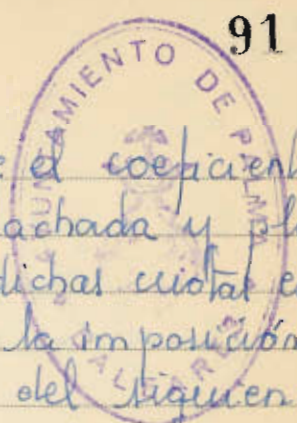 91
AYUNTAMIENTO DE PALMA
BALEARES
e el coeficient
achada y pl
dichas cuotas e
la imposición
del siguien